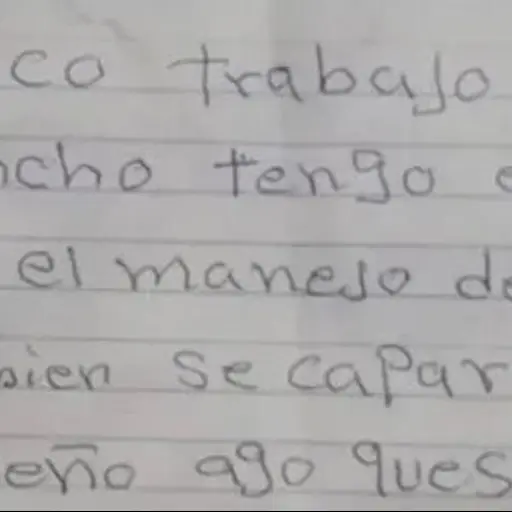 co trabajo
cho tengo
el manejo de
bien se capar
eño ago ques